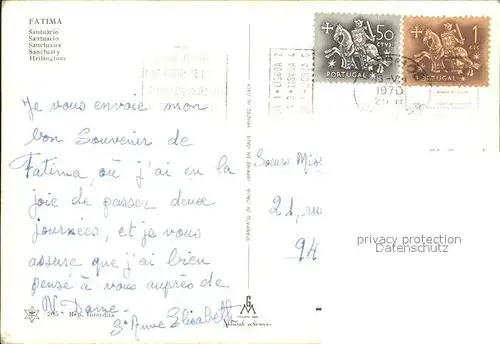 FATIMA
Santuário
Santuario
Sanctuaire
Sanctuary
Heiligtum
50
CTVS
PORTUGAL
1
ESC
PORTUGAL
1970
Je vous envoie mon
bon Souvenir de
Fatima, où j'ai eu la
joie de passer deux
journées, et je vous
assure que j'ai bien
pensé à vous auprès de
N. Dame.
Sr Anne Elisabeth
Soeurs Miss
21, rue
94
privacy protection
Datenschutz
PRINTED IN ITALY
IMPRIMÉ EN ITALIE
STAMPATO IN ITALIA
205 - Rep. Interdite